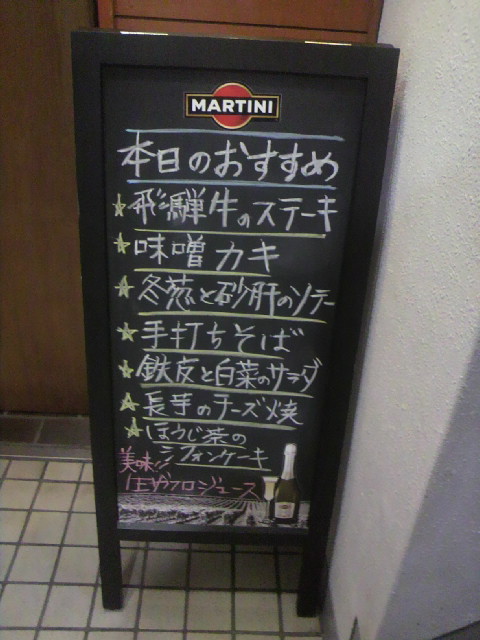 MARTINI
本日のおすすめ
★飛騨牛のステーキ
★味噌カキ
★冬葱と砂肝のソテー
★手打ちそば
★鉄皮と白菜のサラダ
★長芋のチーズ焼
★ほうじ茶の
シフォンケーキ
美味!!
ジュース